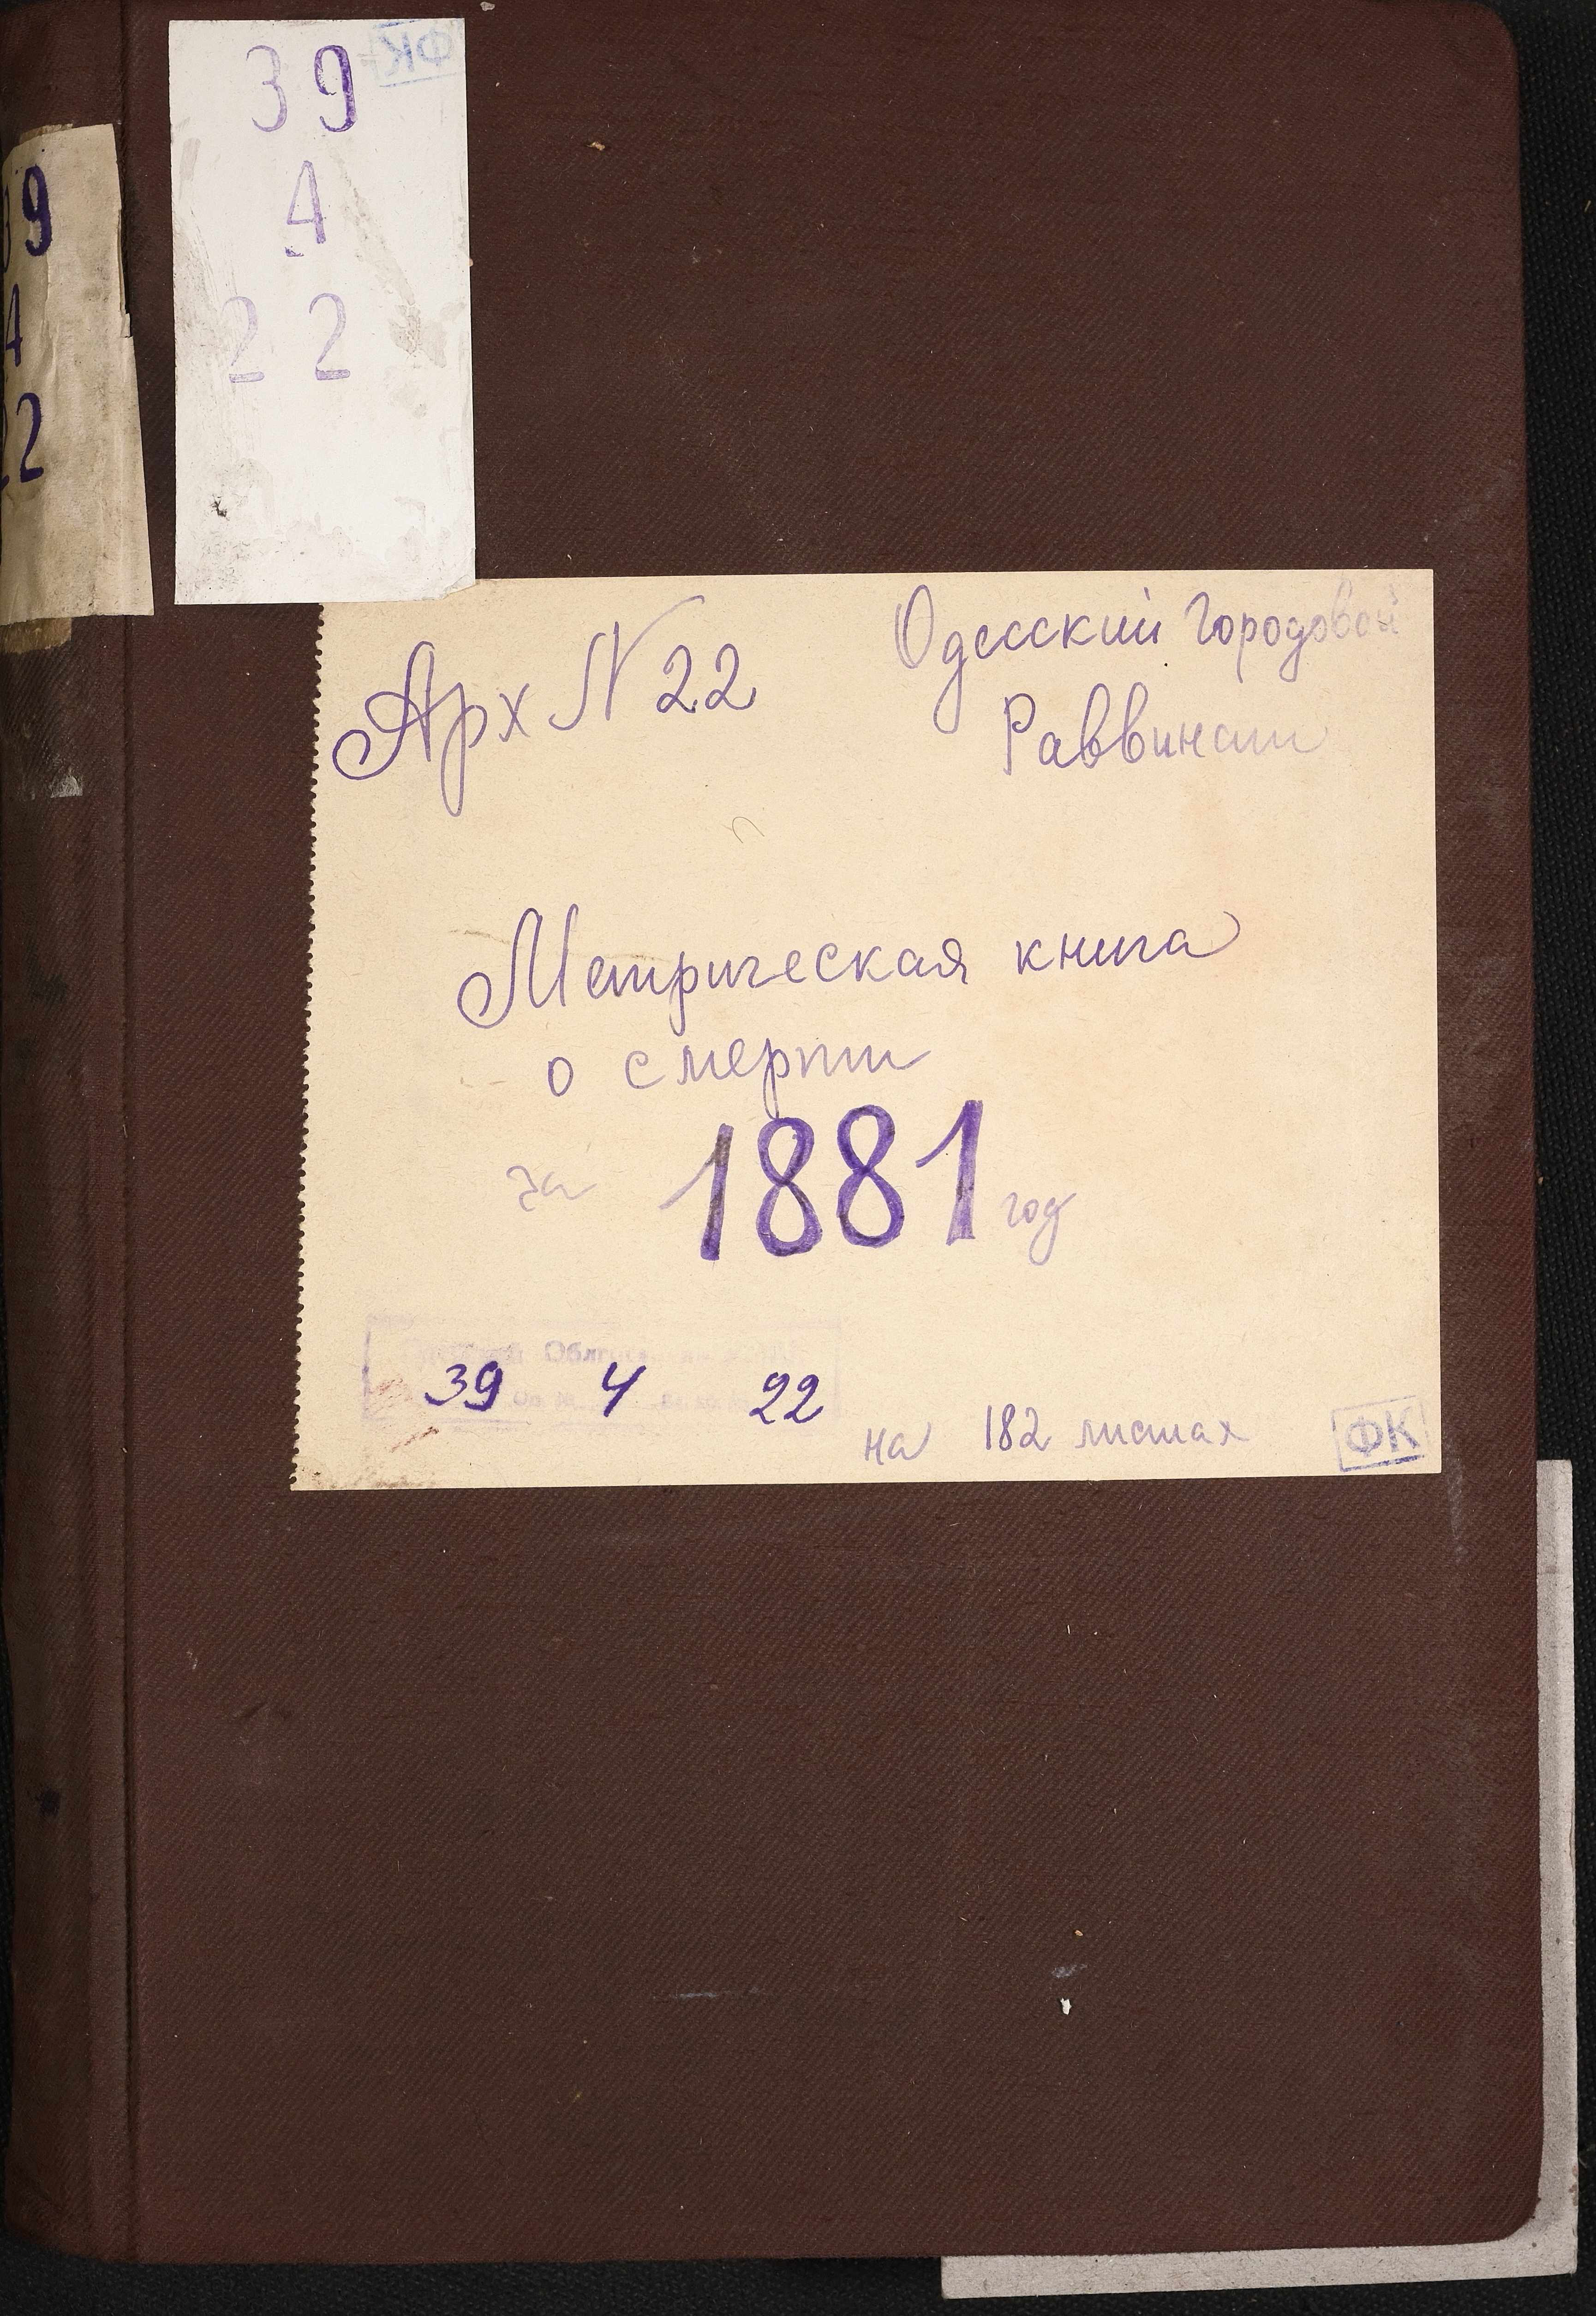 39
ФК
4
22
39
4
22
Арх N 22
Одесский Городовой
Раввинат
Метрическая книга
о смерти
за 1881 год
39 4 22
на 182 листах
ФК